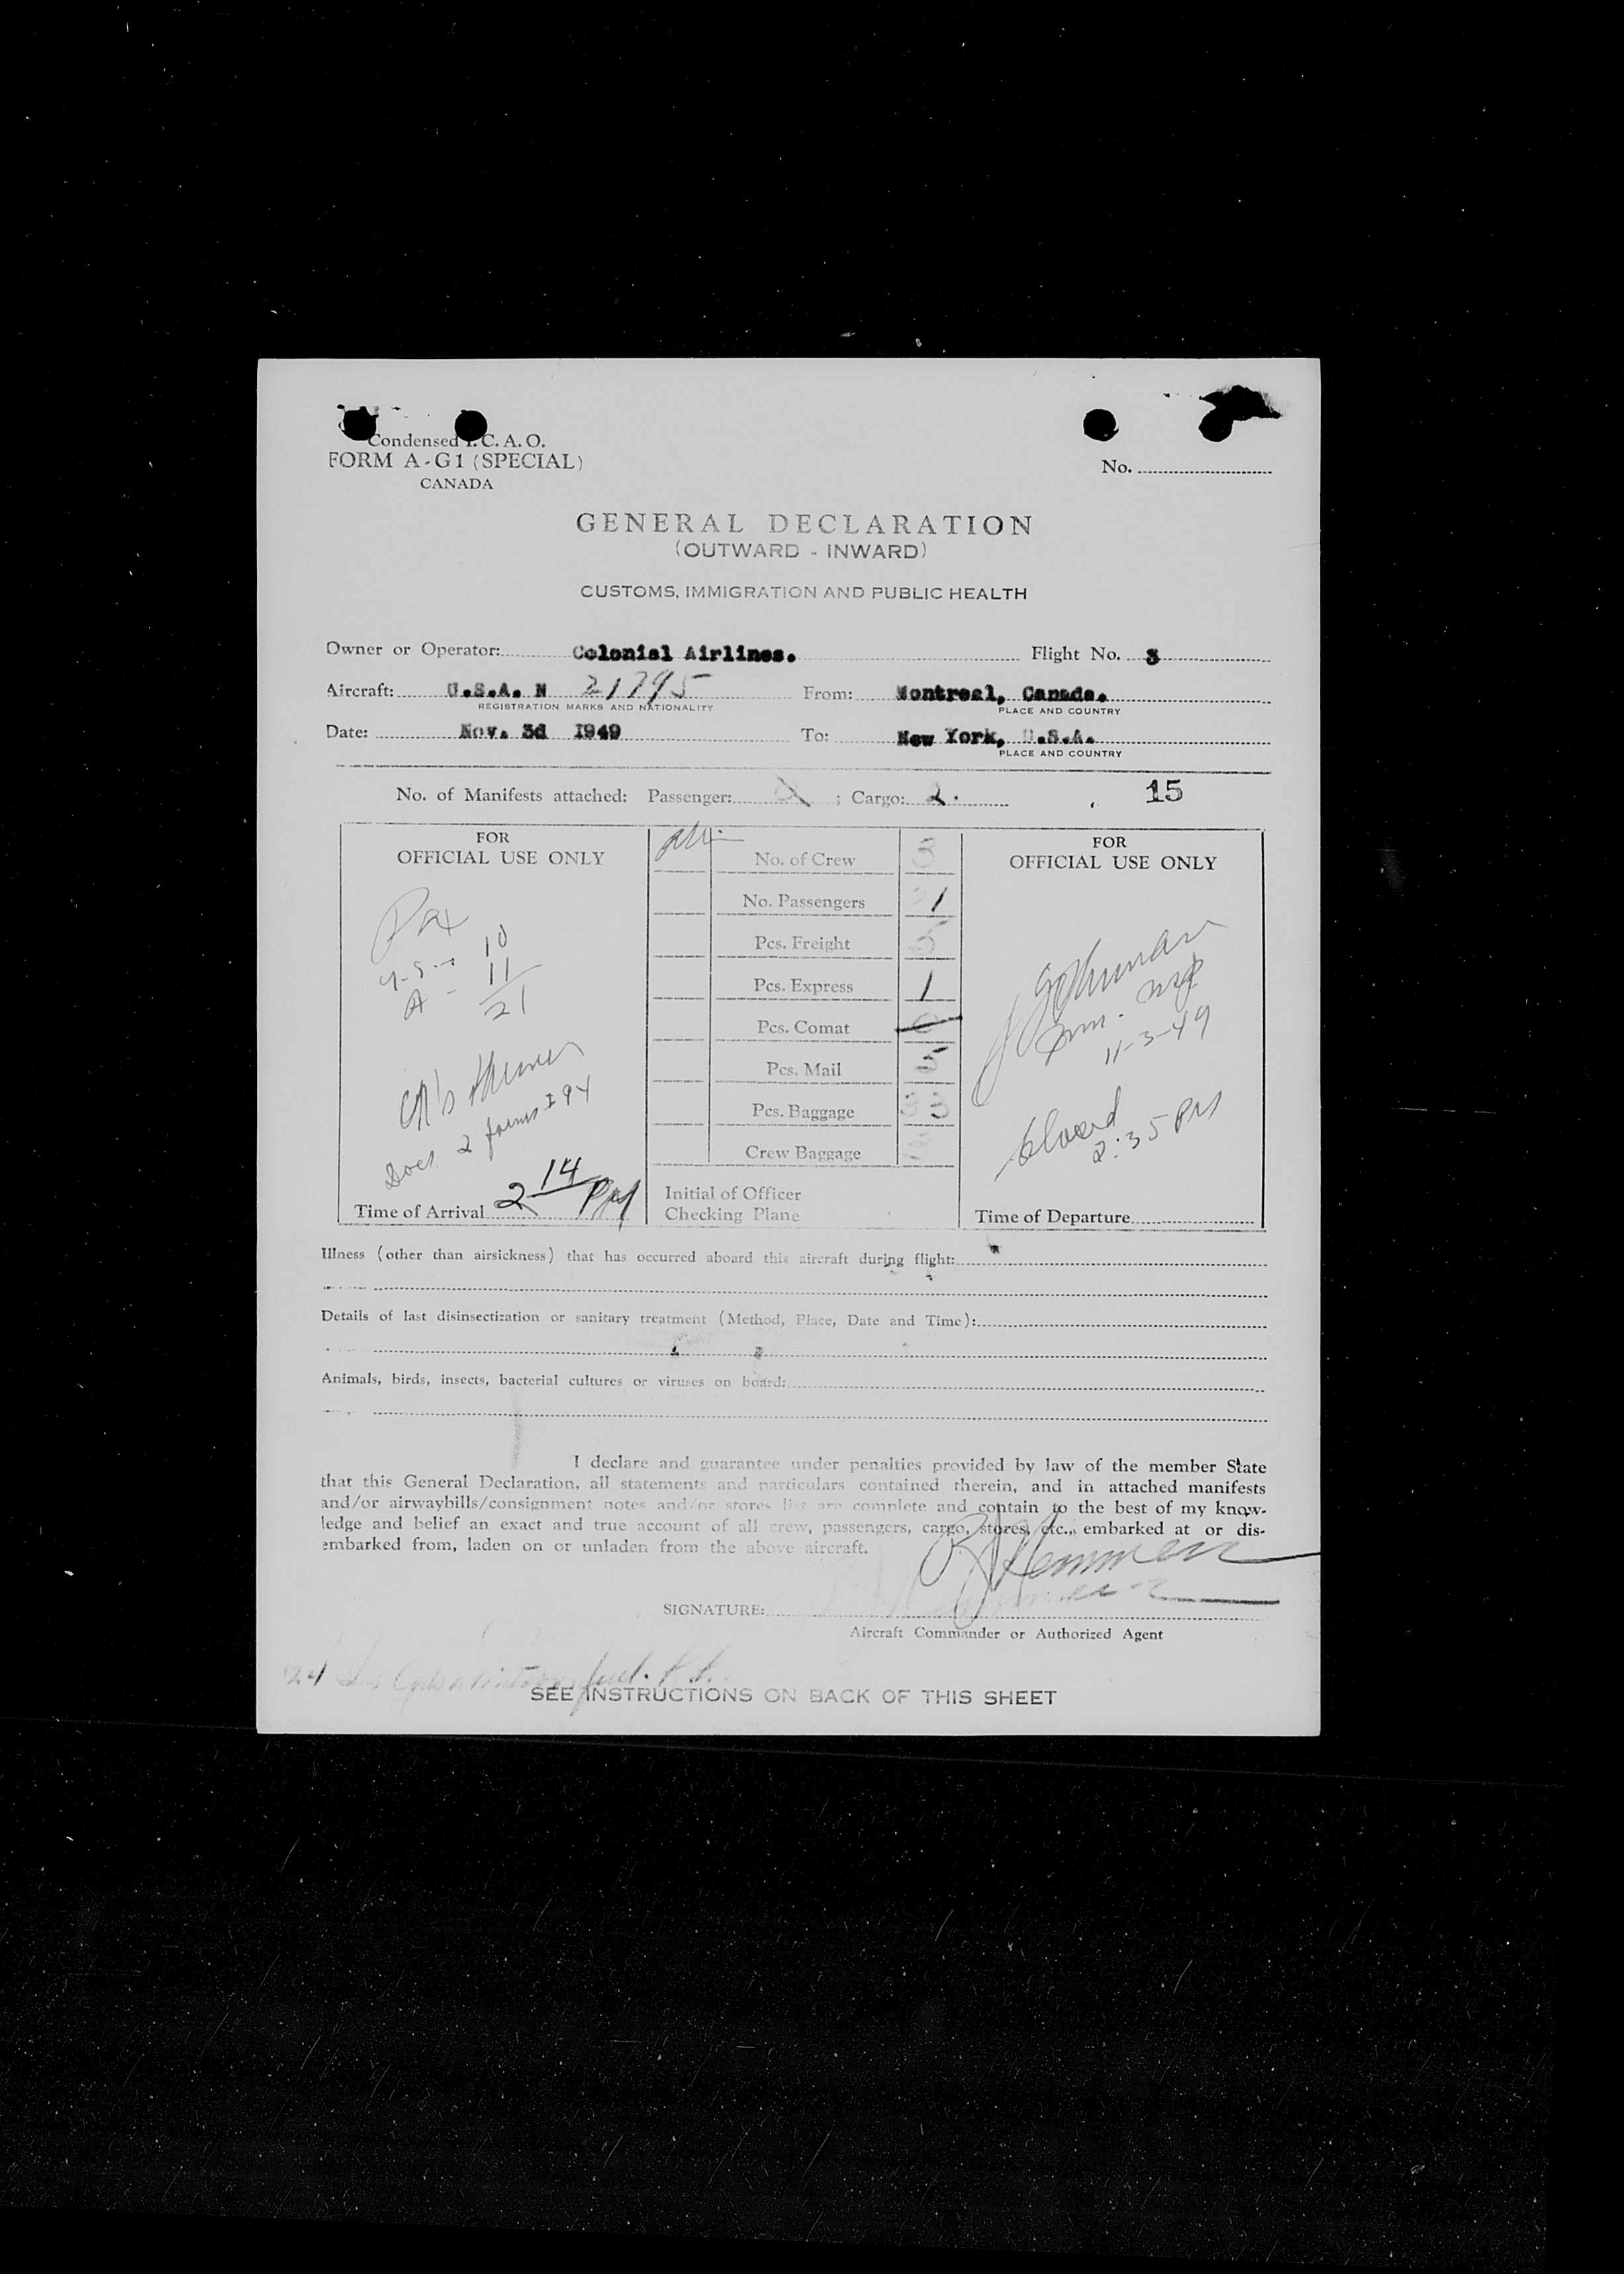 Condensed I. C. A. O.
FORM A-G1 (SPECIAL)
CANADA
No.
GENERAL DECLARATION
(OUTWARD - INWARD)
CUSTOMS, IMMIGRATION AND PUBLIC HEALTH
Owner or Operator: Colonial Airlines. Flight No. 3
Aircraft: U.S.A. N 21795 From: Montreal, Canada.
REGISTRATION MARKS AND NATIONALITY PLACE AND COUNTRY
Date: Nov. 3d 1949 To: New York, U.S.A.
PLACE AND COUNTRY
No. of Manifests attached: Passenger: ; Cargo: 2. 15
FOR
OFFICIAL USE ONLY
Pax
U.S. - 10
A - 11
21
2 forms I 94
Time of Arrival 2 14 PM
No. of Crew 3
No. Passengers 1
Pcs. Freight 5
Pcs. Express 1
Pcs. Comat 0
Pcs. Mail 5
Pcs. Baggage 33
Crew Baggage 3
Initial of Officer
Checking Plane
FOR
OFFICIAL USE ONLY
Imm. Insp
11-3-49
2:35 PM
Time of Departure
Illness (other than airsickness) that has occurred aboard this aircraft during flight:
Details of last disinsectization or sanitary treatment (Method, Place, Date and Time):
Animals, birds, insects, bacterial cultures or viruses on board:
I declare and guarantee under penalties provided by law of the member State
that this General Declaration, all statements and particulars contained therein, and in attached manifests
and/or airwaybills/consignment notes and/or stores list are complete and contain to the best of my know-
ledge and belief an exact and true account of all crew, passengers, cargo, stores, etc., embarked at or dis-
embarked from, laden on or unladen from the above aircraft.
SIGNATURE:
Aircraft Commander or Authorized Agent
SEE INSTRUCTIONS ON BACK OF THIS SHEET